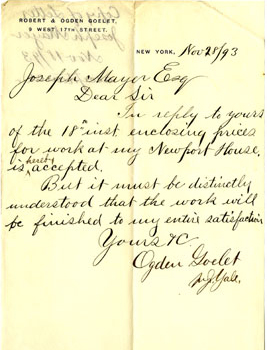 ROBERT & OGDEN GOELET,
9 WEST 17TH STREET.
NEW YORK, Nov 28/93
Joseph Mayor Esq
Dear Sir
In reply to yours
of the 18th inst enclosing prices
for work at my Newport House,
is hereby accepted.
But it must be distinctly
understood that the work will
be finished to my entire satisfaction
Yours &C
Ogden Goelet
p J. Yale.